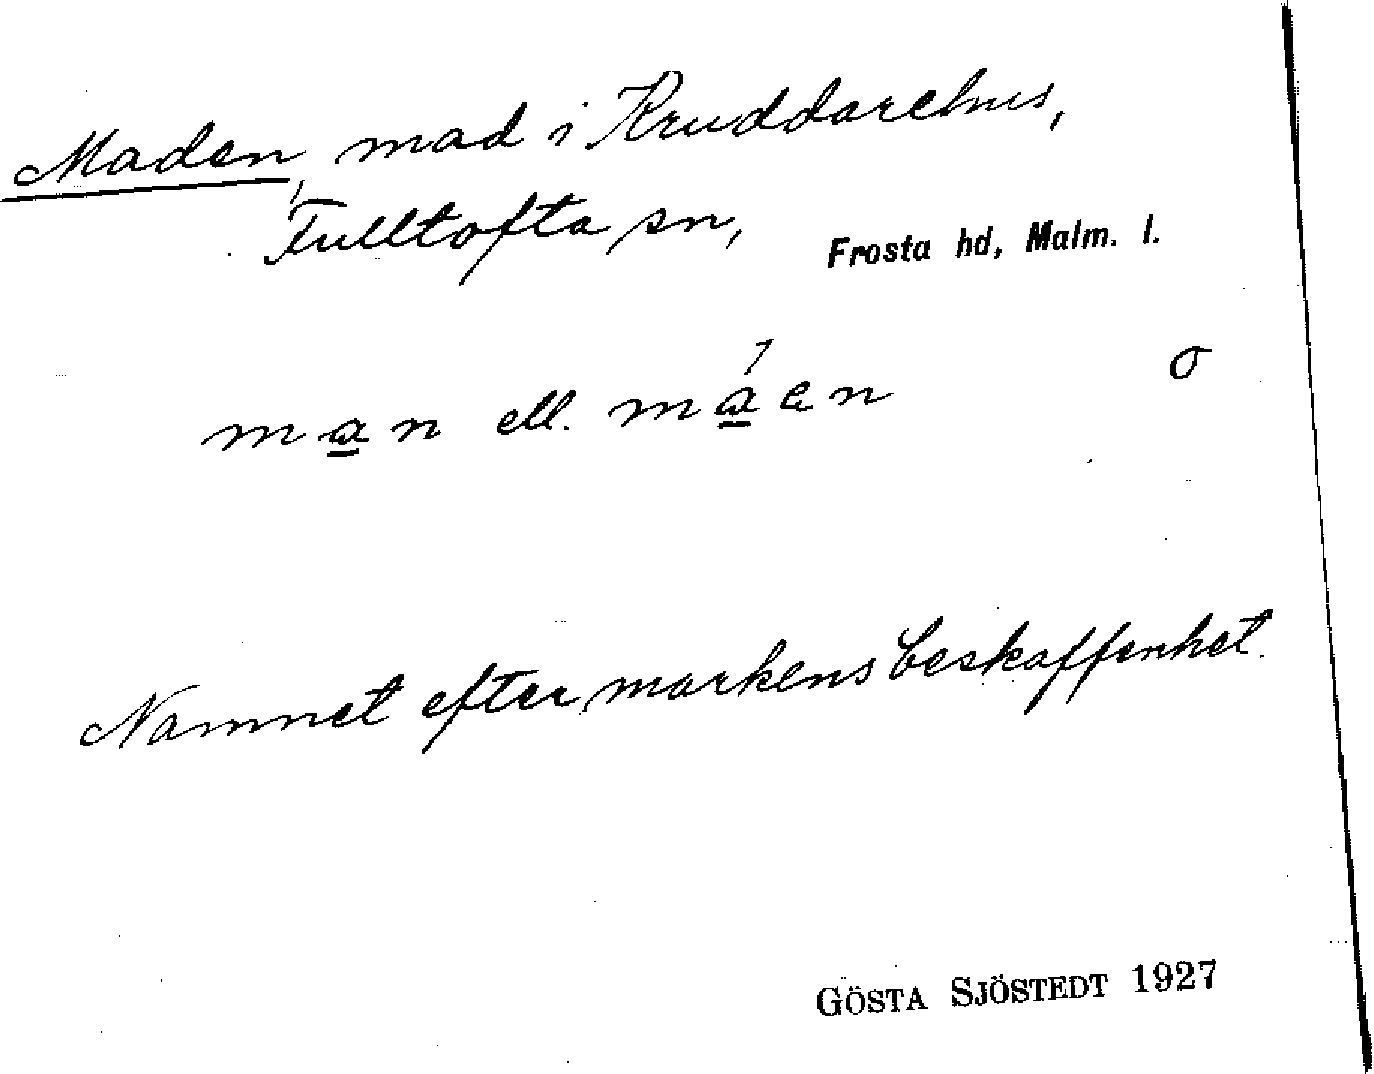 Maden, mad i Kruddarehus,
Fulltofta sn, Frosta hd, Malm. l.
man ell. máen σ
Namnet efter markens beskaffenhet.
GÖSTA SJÖSTEDT 1927